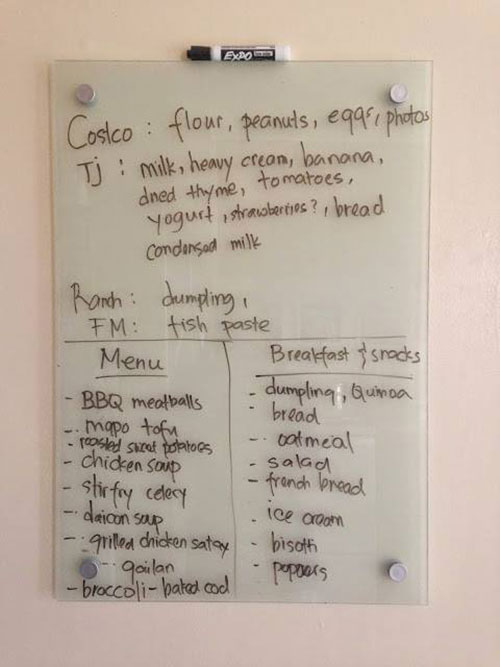 EXPO
Costco : flour, peanuts, eggs, photos
Tj : milk, heavy cream, banana,
dried thyme, tomatoes,
yogurt, strawberries?, bread
condensed milk
Ranch : dumpling,
FM : fish paste
Menu
- BBQ meatballs
- mapo tofu
- roasted sweet potatoes
- chicken soup
- stir fry celery
- daicon soup
- grilled chicken satay
- gailan
- broccoli - baked cod
Breakfast & snacks
- dumpling, Quinoa
- bread
- oatmeal
- salad
- french bread
- ice cream
- biscth
- poppers